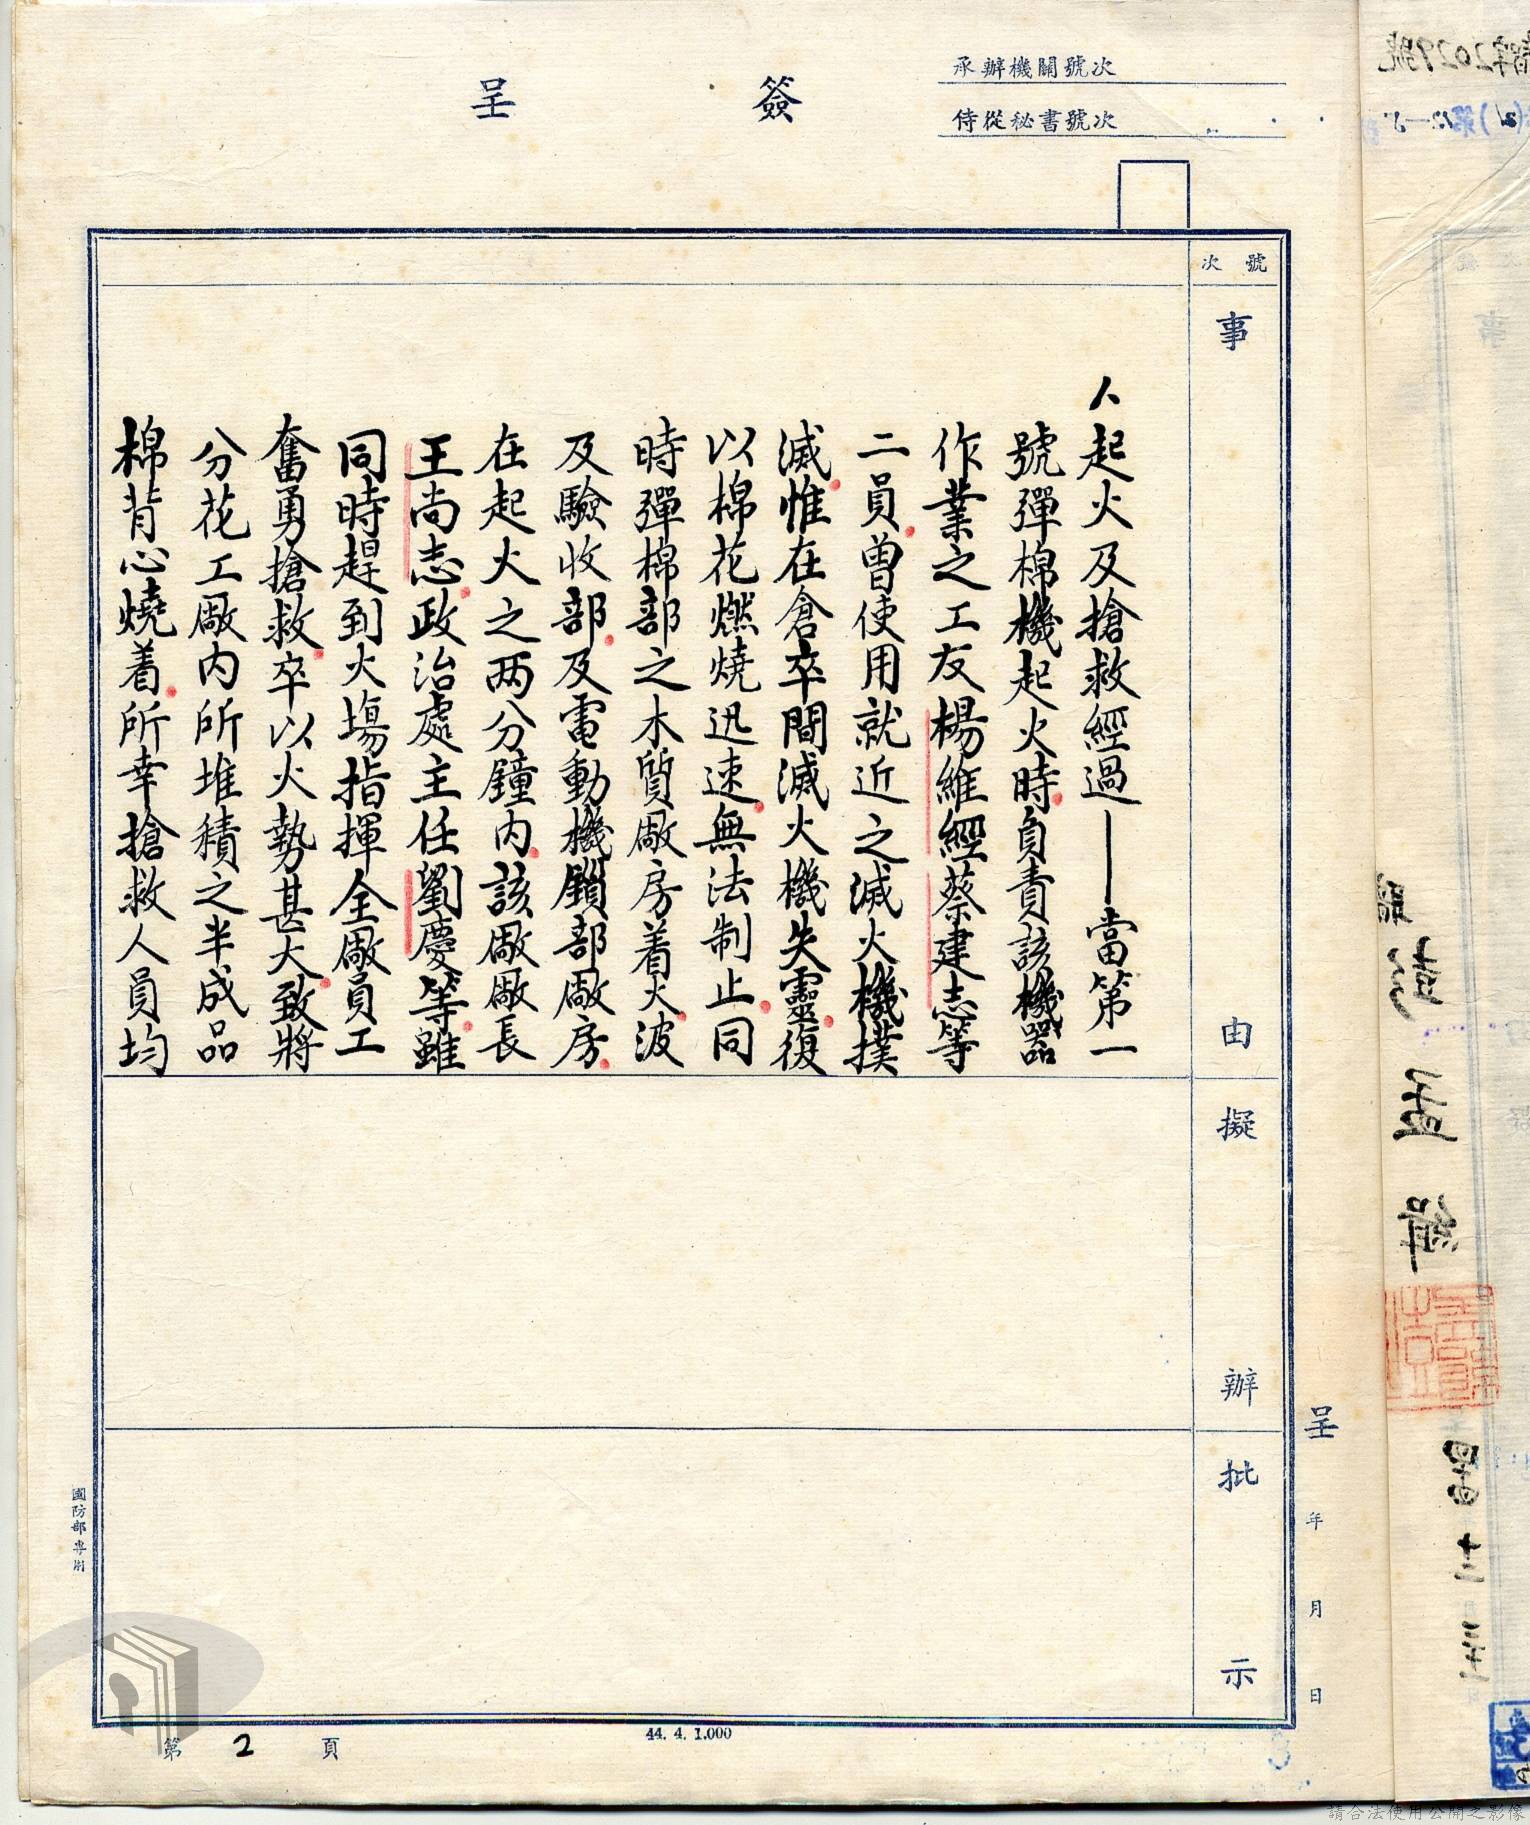 簽呈
承辦機關號次
侍從秘書號次
號次
事由
擬辦
批示
人起火及搶救經過——當第一
號彈棉機起火時負責該機器
作業之工友楊維經蔡建志等
二員曾使用就近之滅火機撲
滅惟在倉卒間滅火機失靈復
以棉花燃燒迅速無法制止同
時彈棉部之木質廠房着火波
及驗收部及電動機鎖部廠房
在起火之两分鐘內該廠廠長
王尚志政治處主任劉慶等雖
同時趕到火塲指揮全廠員工
奮勇搶救卒以火勢甚大致將
分花工廠内所堆積之半成品
棉背心燒着所幸搶救人員均
呈 年 月 日
國防部專用
第2頁
44. 4. 1.000
彭孟緝
請合法使用公開之影像